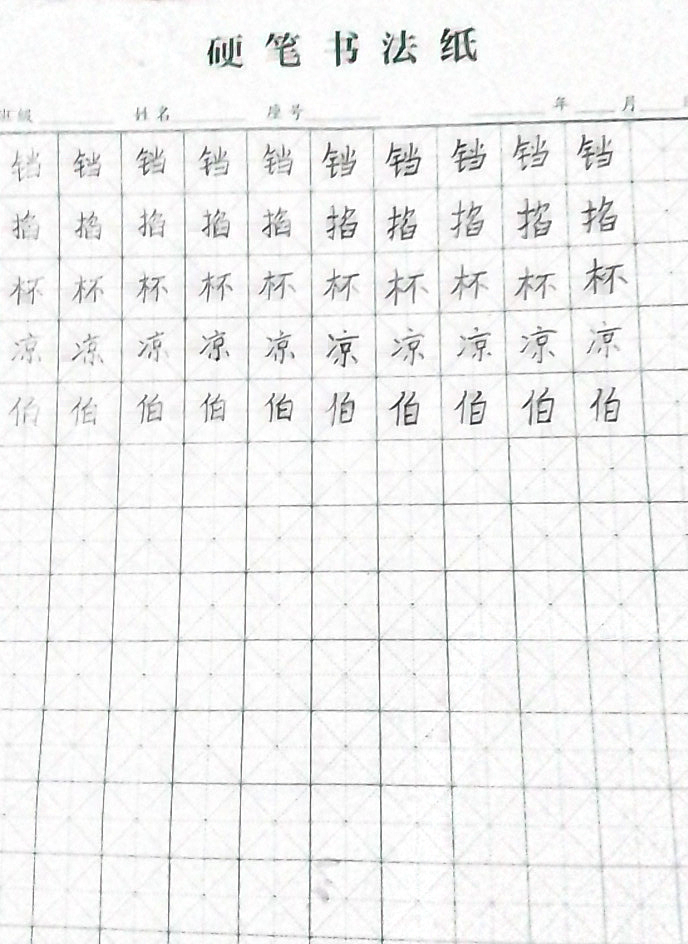 硬笔书法纸
班级 姓名 座号 年 月
铛 铛 铛 铛 铛 铛 铛 铛 铛 铛
掐 掐 掐 掐 掐 掐 掐 掐 掐 掐
杯 杯 杯 杯 杯 杯 杯 杯 杯 杯
凉 凉 凉 凉 凉 凉 凉 凉 凉 凉
伯 伯 伯 伯 伯 伯 伯 伯 伯 伯